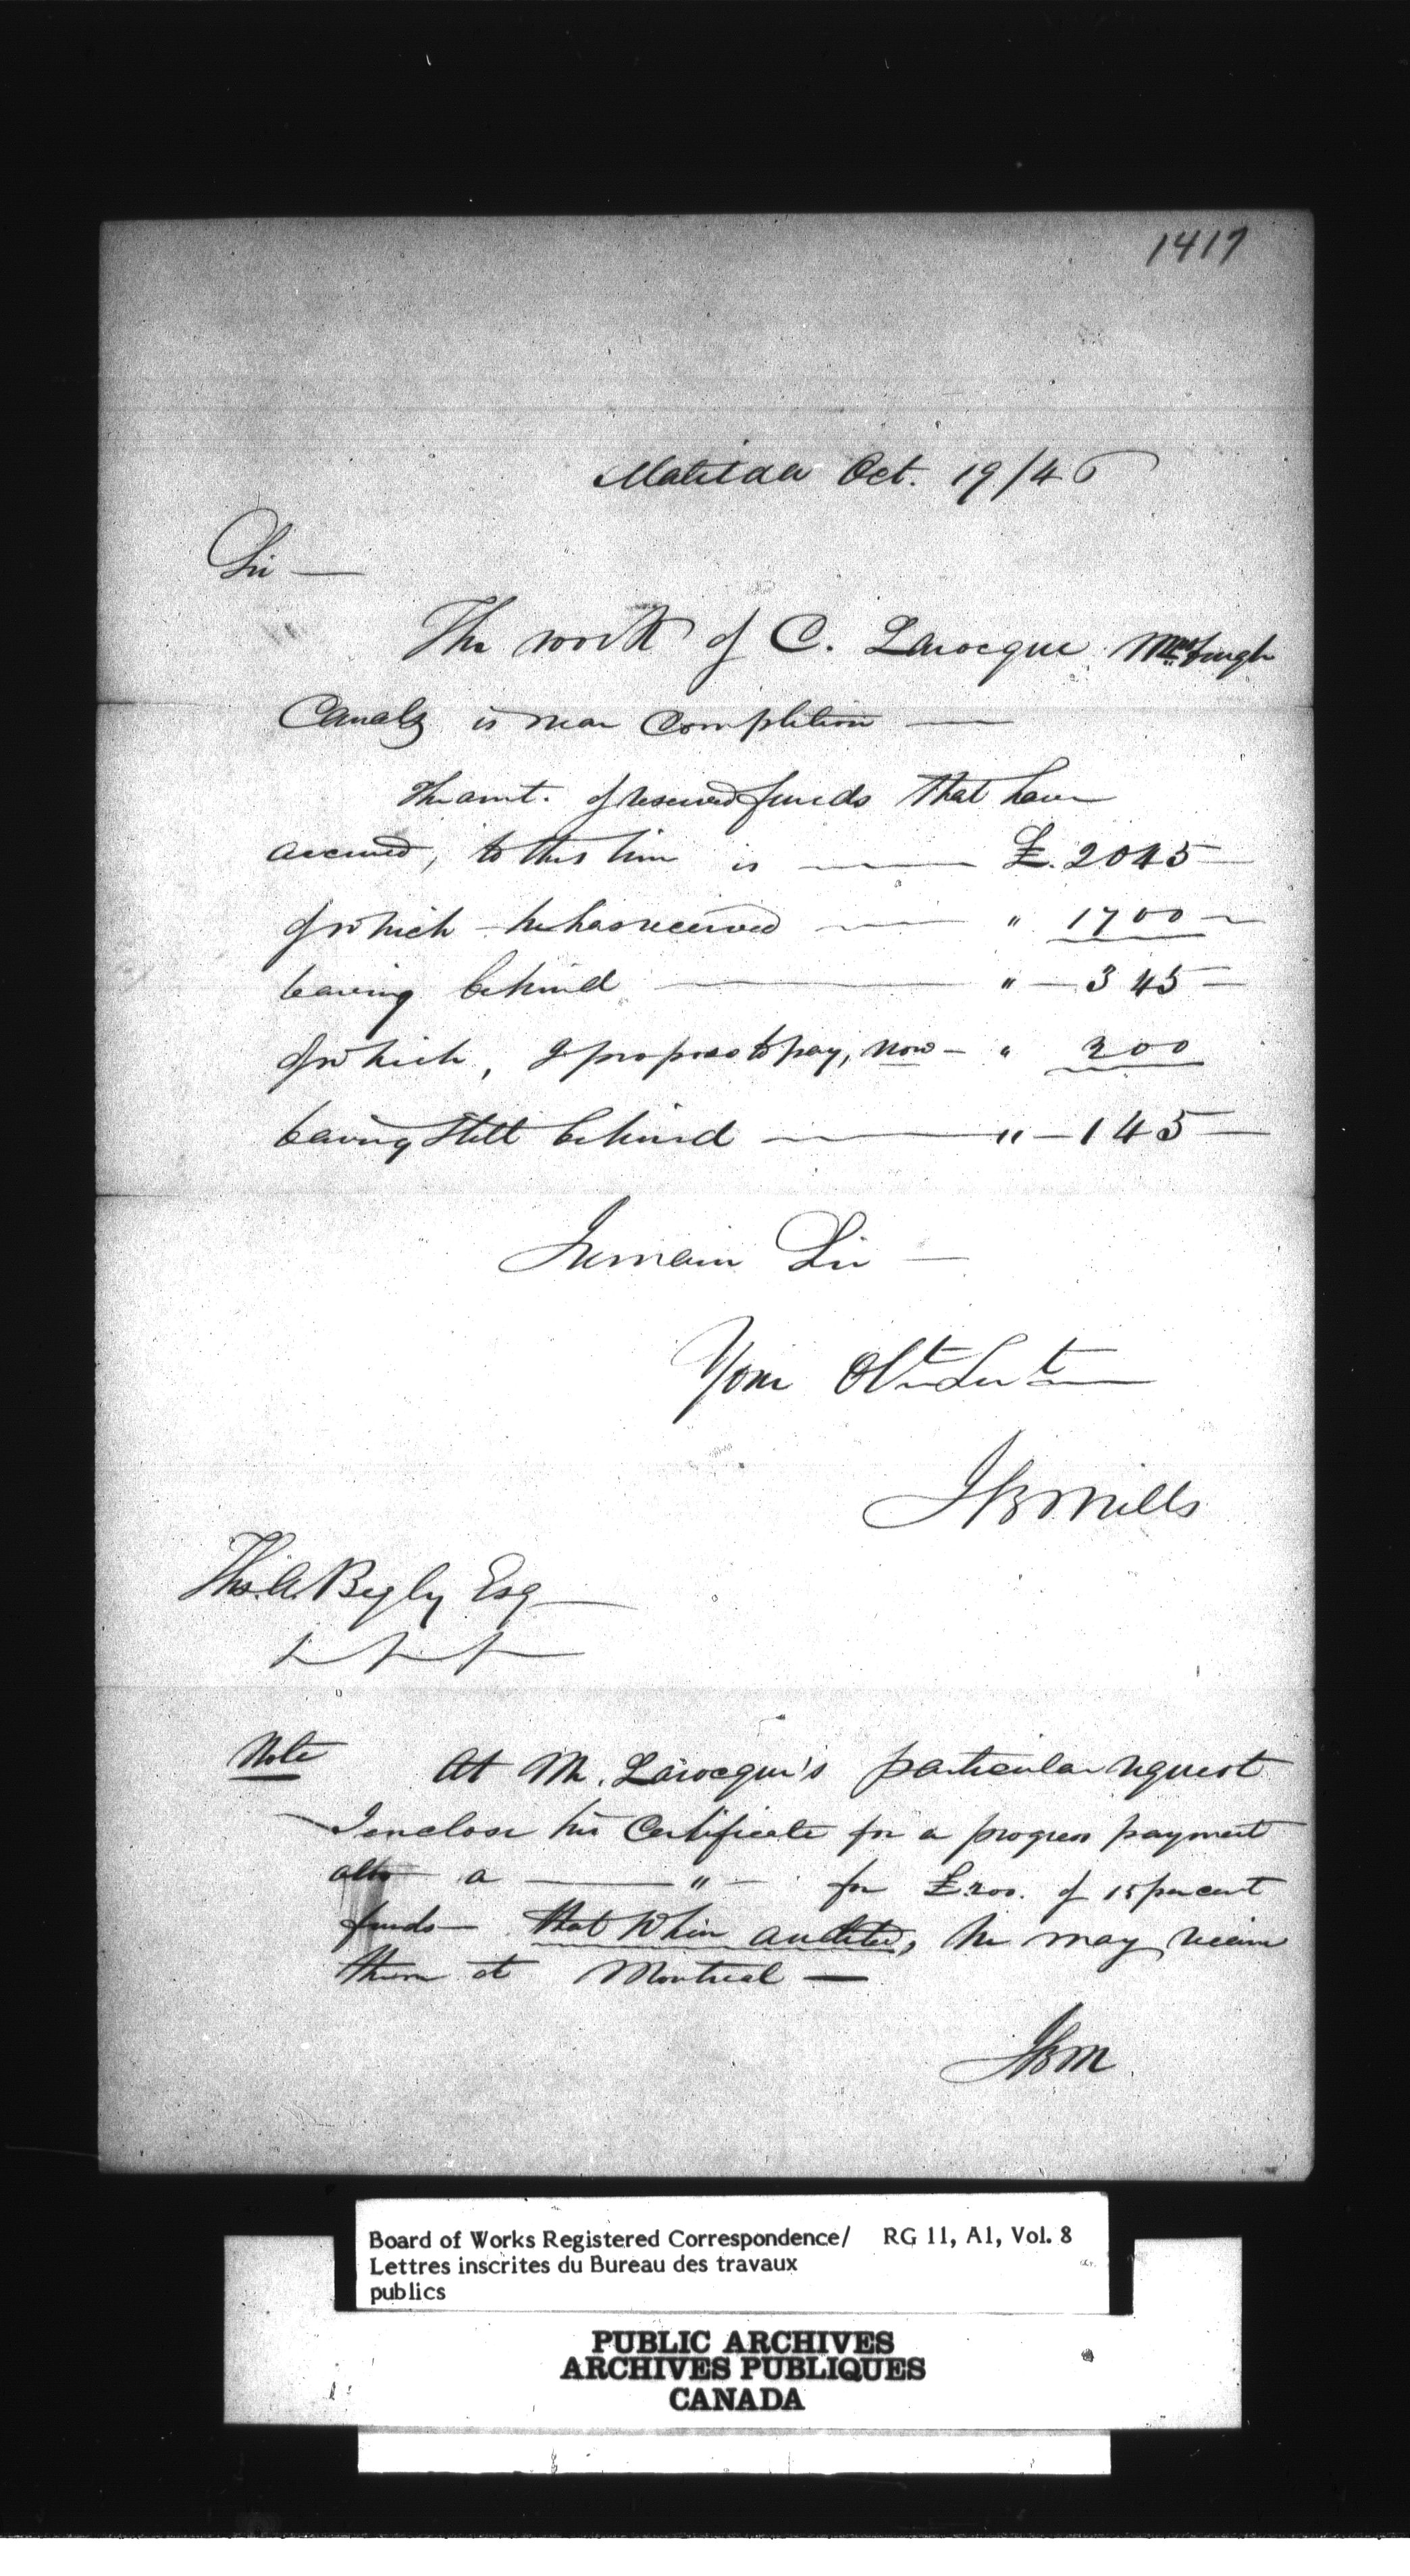 1417
Matilda Oct. 19/45
Sir —
The work of C. Larocque
Canals is near Completion —
The amt. of reserved funds that have
accrued, to this time is — £. 2045 —
of which he has received — " 1700 —
leaving behind — " — 345 —
of which, I propose to pay, now — " 200
leaving still behind — " — 145 —
I remain Sir —
Your Obt Servt
J B Mills
Thos. A. Begly Esq
Note At Mr. Larocque's particular request
I enclose his Certificate for a progress payment
also a — " — for £200. of 15 per cent
funds — that when audited, he may receive
them at Montreal —
JBM.
Board of Works Registered Correspondence/ RG 11, A1, Vol. 8
Lettres inscrites du Bureau des travaux
publics
PUBLIC ARCHIVES
ARCHIVES PUBLIQUES
CANADA